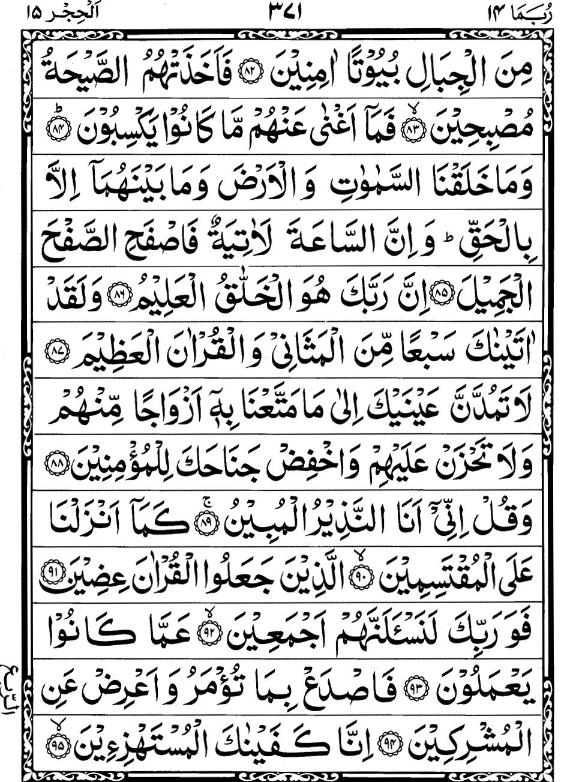 رُبَمَا ١٤
٣٧١
اَلْحِجْر ١٥
مِنَ الْجِبَالِ بُيُوْتًا اٰمِنِيْنَ ۝٨٢ فَاَخَذَتْهُمُ الصَّيْحَةُ
مُصْبِحِيْنَ ۝٨٣ۙ فَمَاۤ اَغْنٰى عَنْهُمْ مَّا كَانُوْا يَكْسِبُوْنَ ۝٨٤ؕ
وَمَا خَلَقْنَا السَّمٰوٰتِ وَ الْاَرْضَ وَمَا بَيْنَهُمَاۤ اِلَّا
بِالْحَقِّ ؕ وَ اِنَّ السَّاعَةَ لَاٰتِيَةٌ فَاصْفَحِ الصَّفْحَ
الْجَمِيْلَ ۝٨٥ اِنَّ رَبَّكَ هُوَ الْخَلّٰقُ الْعَلِيْمُ ۝٨٦ وَلَقَدْ
اٰتَيْنٰكَ سَبْعًا مِّنَ الْمَثَانِىْ وَ الْقُرْاٰنَ الْعَظِيْمَ ۝٨٧
لَا تَمُدَّنَّ عَيْنَيْكَ اِلٰى مَا مَتَّعْنَا بِهٖۤ اَزْوَاجًا مِّنْهُمْ
وَلَا تَحْزَنْ عَلَيْهِمْ وَاخْفِضْ جَنَاحَكَ لِلْمُؤْمِنِيْنَ ۝٨٨
وَقُلْ اِنِّىْۤ اَنَا النَّذِيْرُ الْمُبِيْنُ ۝٨٩ۚ كَمَاۤ اَنْزَلْنَا
عَلَى الْمُقْتَسِمِيْنَ ۝٩٠ۙ الَّذِيْنَ جَعَلُوا الْقُرْاٰنَ عِضِيْنَ ۝٩١
فَوَرَبِّكَ لَنَسْـَٔلَنَّهُمْ اَجْمَعِيْنَ ۝٩٢ۙ عَمَّا كَانُوْا
يَعْمَلُوْنَ ۝٩٣ فَاصْدَعْ بِمَا تُؤْمَرُ وَ اَعْرِضْ عَنِ
الْمُشْرِكِيْنَ ۝٩٤ اِنَّا كَفَيْنٰكَ الْمُسْتَهْزِءِيْنَ ۝٩٥ۙ
الربع